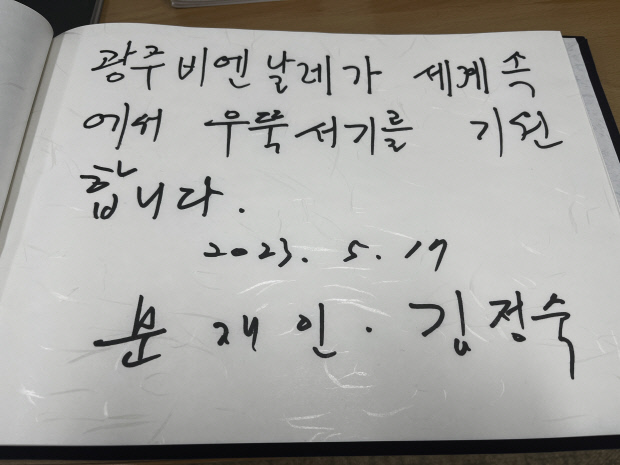 광주비엔날레가 세계속
에서 우뚝서기를 기원
합니다.
2023. 5. 17
문재인. 김정숙